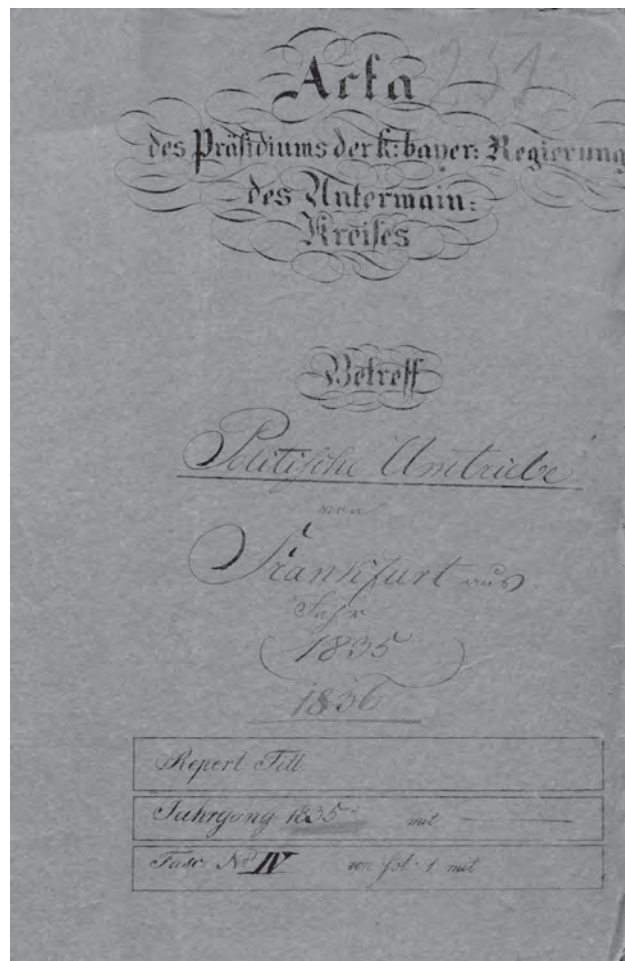 Acta 231
des Präsidiums der k: bayer: Regierung
des Untermain:
Kreises
Betreff
Politische Umtriebe
von
Frankfurt aus
Jahr
1835
1836
Repert Titl.
Jahrgang 1835 mit
Fasc: No IV von fol: 1 mit